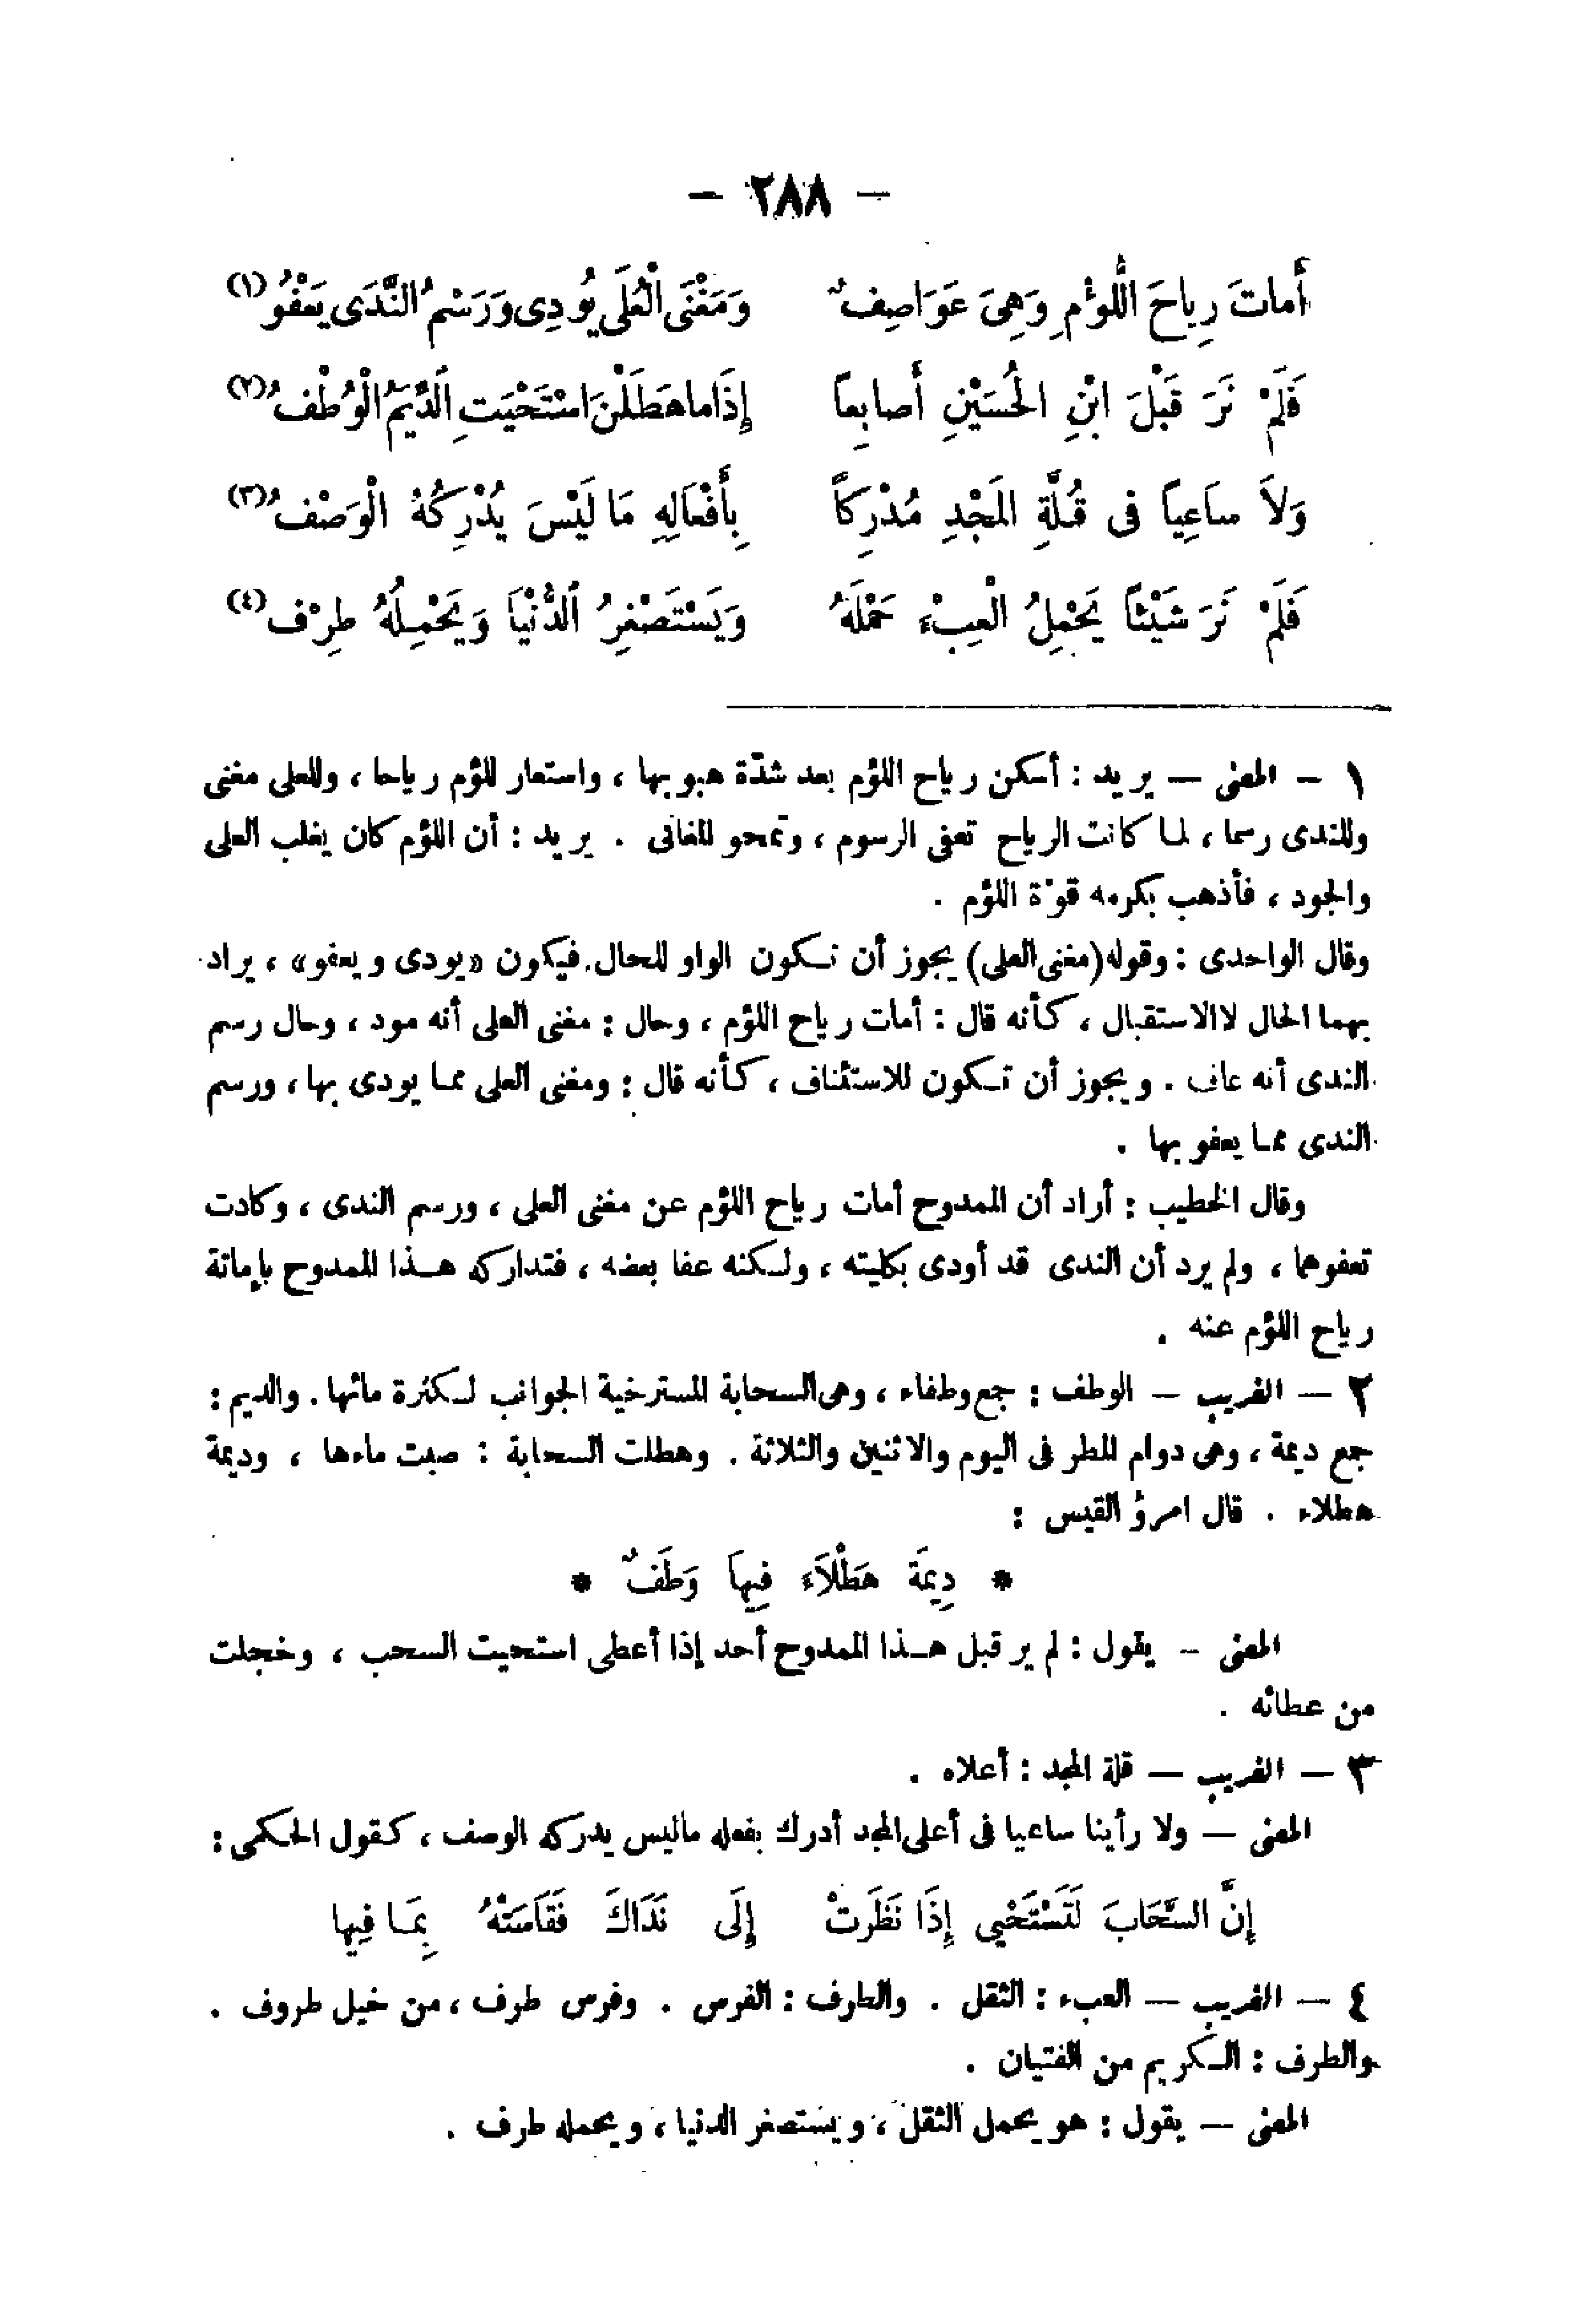 — ٢٨٨ —
أَماتَ رِياحَ اللُّؤْمِ وَهِىَ عَوَاصِفٌ وَمَغْنَى الْعُلَى يُودِى وَرَسْمُ النَّدَى يَعْفُو(١)
فَلَمْ نَرَ قَبْلَ ابْنِ الحُسَيْنِ أَصابِعاً إِذَا ما هَطَلْنَ اسْتَحْيَتِ اَلدِّيَمُ الْوُطْفُ(٢)
وَلاَ ساَعِياً فى قُلَّةِ المَجْدِ مُدْرِكاً بِأَفْعاَلِهِ مَا لَيْسَ يُدْرِكُهُ الْوَصْفُ(٣)
فَلَمْ نَرَ شَيْئاً يَحْمِلُ الْعِبْءَ حَمْلَهُ وَيَسْتَصْغِرُ اَلدُّنْياَ وَيَحْمِلُهُ طِرْف(٤)
١ — المعنى — يريد : أسكن رياح اللؤم بعد شدّة هبوبها ، واستعار للؤم رياحا ، وللعلى مغنى
وللندى رسما ، لما كانت الرياح تعفى الرسوم ، وتمحو المغانى . يريد : أن اللؤم كان يغلب العلى
والجود ، فأذهب بكرمه قوّة اللؤم .
وقال الواحدى : وقوله (مغنى العلى) يجوز أن تكون الواو للحال. فيكون «يودى ويعفو» ، يراد
بهما الحال لا الاستقبال ، كأنه قال : أمات رياح اللؤم ، وحال : مغنى العلى أنه مود ، وحال رسم
الندى أنه عاف . ويجوز أن تكون للاستئناف ، كأنه قال : ومغنى العلى مما يودى بها ، ورسم
الندى مما يعفو بها .
وقال الخطيب : أراد أن الممدوح أمات رياح اللؤم عن مغنى العلى ، ورسم الندى ، وكادت
تعفوهما ، ولم يرد أن الندى قد أودى بكليته ، ولكنه عفا بعضه ، فتداركه هذا الممدوح بإماتة
رياح اللؤم عنه .
٢ — الغريب — الوطف : جمع وطفاء ، وهى السحابة المسترخية الجوانب لكثرة مائها . والديم :
جمع ديمة ، وهى دوام المطر فى اليوم والاثنين والثلاثة . وهطلت السحابة : صبت ماءها ، وديمة
هطلاء . قال امرؤ القيس :
* دِيمَة هَطْلاَء فِيهاَ وَطَفٌ *
المعنى — يقول : لم ير قبل هذا الممدوح أحد إذا أعطى استحيت السحب ، وخجلت
من عطائه .
٣ — الغريب — قلة المجد : أعلاه .
المعنى — ولا رأينا ساعيا فى أعلى المجد أدرك بفعله ماليس يدركه الوصف ، كقول الحكمى :
إِنَّ السَّحَابَ لَتَسْتَحْيِى إِذَا نَظَرَتْ إِلَى نَدَاكَ فَقَاسَتْهُ بِمَا فِيها
٤ — الغريب — العبء : الثقل . والطرف : الفرس . وفرس طرف ، من خيل طروف .
والطرف : الكريم من الفتيان .
المعنى — يقول : هو يحمل الثقل ، ويستصغر الدنيا ، ويحمله طرف .